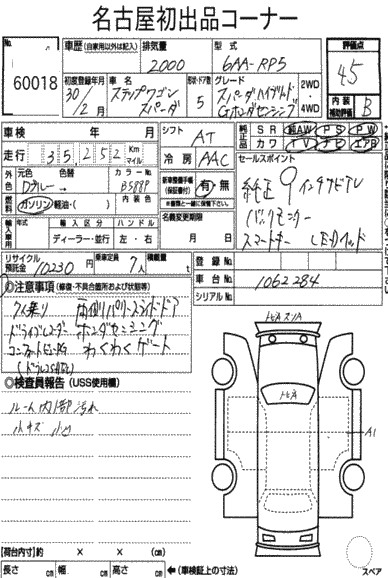 名古屋初出品コーナー
No. 60018
車歴(自家用以外は記入) 排気量 2000
型式 6AA-RP5
評価点 4.5
初度登録年月 30年/2月
車名 ステップワゴン スパーダ
形状・ドア数 5
グレード スパーダハイブリッド G・ホンダセンシング
2WD・4WD
内装補助評価 B
車検 年 月
シフト AT
純正品 SR 純AW PS PW
カワ TV ナビ エアB
走行 35,252 Km マイル
冷房 AAC
セールスポイント
純正9インチナビTV
バックモニター
スマートキー LEDライト
外色 元色 Dブルー 色替
カラーNo. B588P
内装色
燃料 ガソリン・軽油・( )
新車整備手帳(保証書付) 有・無
※書類と一緒に保管下さい。
輸入車用 年式 年 輸入区分 ディーラー・並行 ハンドル 左・右
名義変更期限 月 日
リサイクル預託金 10230円
乗車定員 7人
積載量 t
登録No.
車台No. 1062284
シリアルNo.
◎注意事項(修復・不具合箇所および状態等)
7人乗り 両側パワースライドドア
ドライブレコーダー ホンダセンシング
わくわくゲート
◎検査員報告(USS使用欄)
ルーム内部汚れ
小キズ 小凹
トビA スリA
トビA
A1
【荷台内寸】約 × × (cm)
長さ cm 幅 cm 高さ cm ←(車検証上の寸法)
スペア